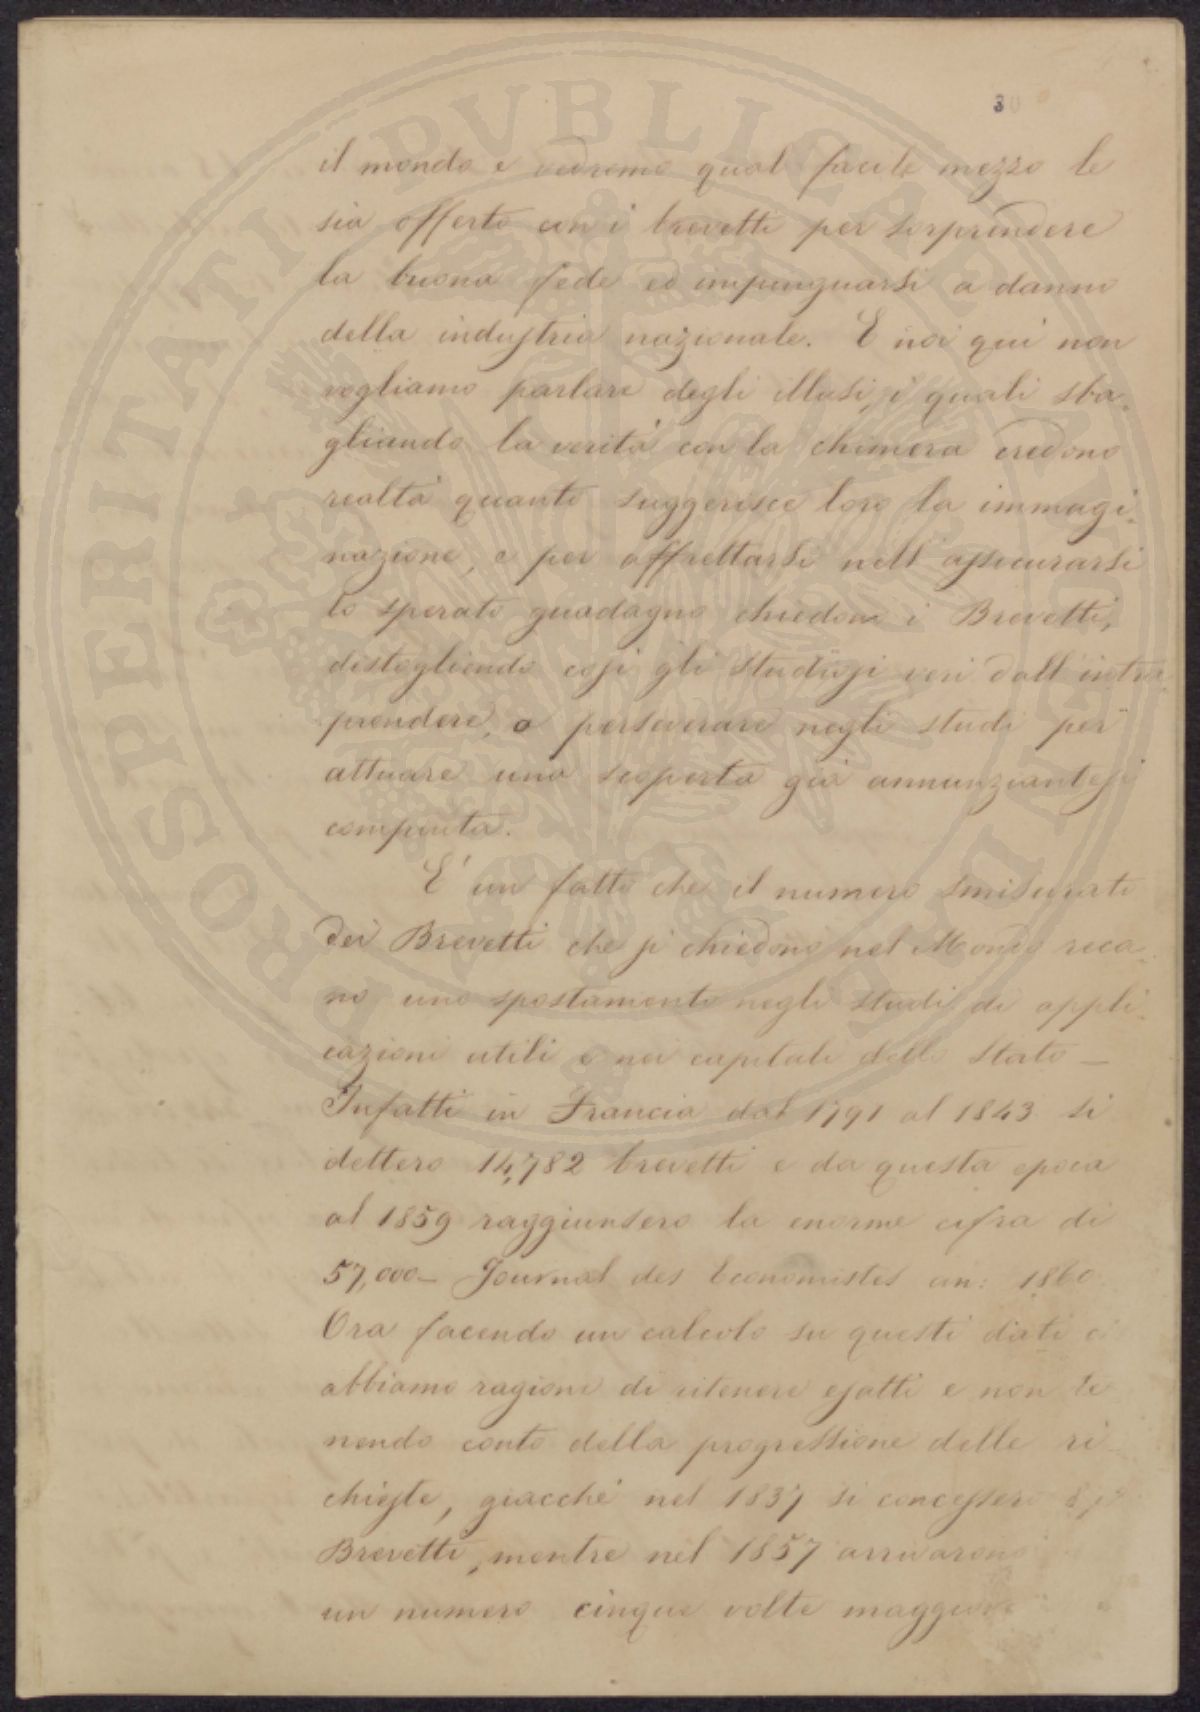 30
il mondo e vedremo qual facile mezzo le
sia offerto con i brevetti per sorprendere
la buona fede ed impinguarsi a danno
della industria nazionale. E noi qui non
vogliamo parlare degli illusi, i quali sba-
gliando la verità con la chimera credono
realtà quanto suggerisce loro la immagi-
nazione, e per affrettarsi nell'assicurarsi
lo sperato guadagno chiedono i Brevetti,
distogliendo così gli studiosi veri dall'intra
prendere, o perseverare negli studi per
attuare una scoperta già annunziantesi
compiuta.
E' un fatto che il numero smisurato
dei Brevetti che si chiedono nel Mondo reca-
no uno spostamento negli studi di appli-
cazioni utili e nei capitali dello Stato —
Infatti in Francia dal 1791 al 1843 si
dettero 14,782 brevetti e da questa epoca
al 1859 raggiunsero la enorme cifra di
57,000 — Journal des Economistes an: 1860
Ora facendo un calcolo su questi dati ci
abbiamo ragione di ritenere esatti e non te
nendo conto della progressione delle ri-
chieste, giacchè nel 1837 si concessero
Brevetti, mentre nel 1857 arrivarono
un numero cinque volte maggiore
PROSPERITATI PVBLICAE